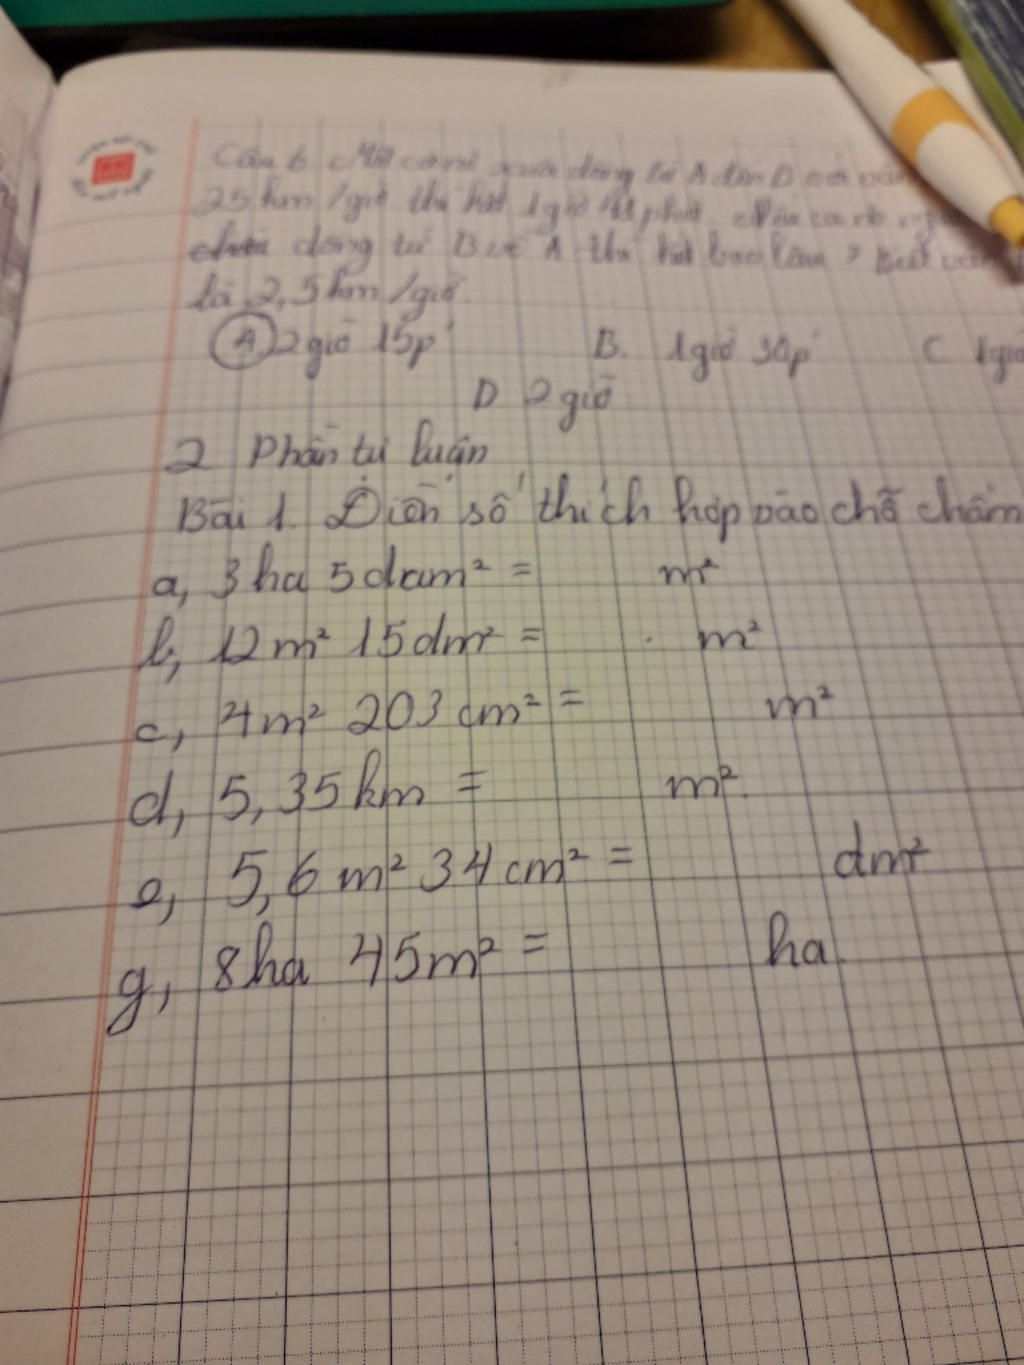 Câu 6. Một ca nô xuôi dòng từ A đến B với vận
25km/giờ thì hết 1giờ phút. Nếu ca nô
dòng từ B về A thì hết bao lâu? Biết vận
là 2,5km/giờ
A 2 giờ 15p' B. 1giờ 30p' C 1giờ
D 2 giờ
2 Phần tự luận
Bài 1. Điền số thích hợp vào chỗ chấm
a, 3ha 5dam² = m²
b, 12m² 15dm² = . m²
c, 4m² 203cm² = m²
d, 5,35km = m².
e, 5,6m² 34cm² = dm²
g, 8ha 45m² = ha.